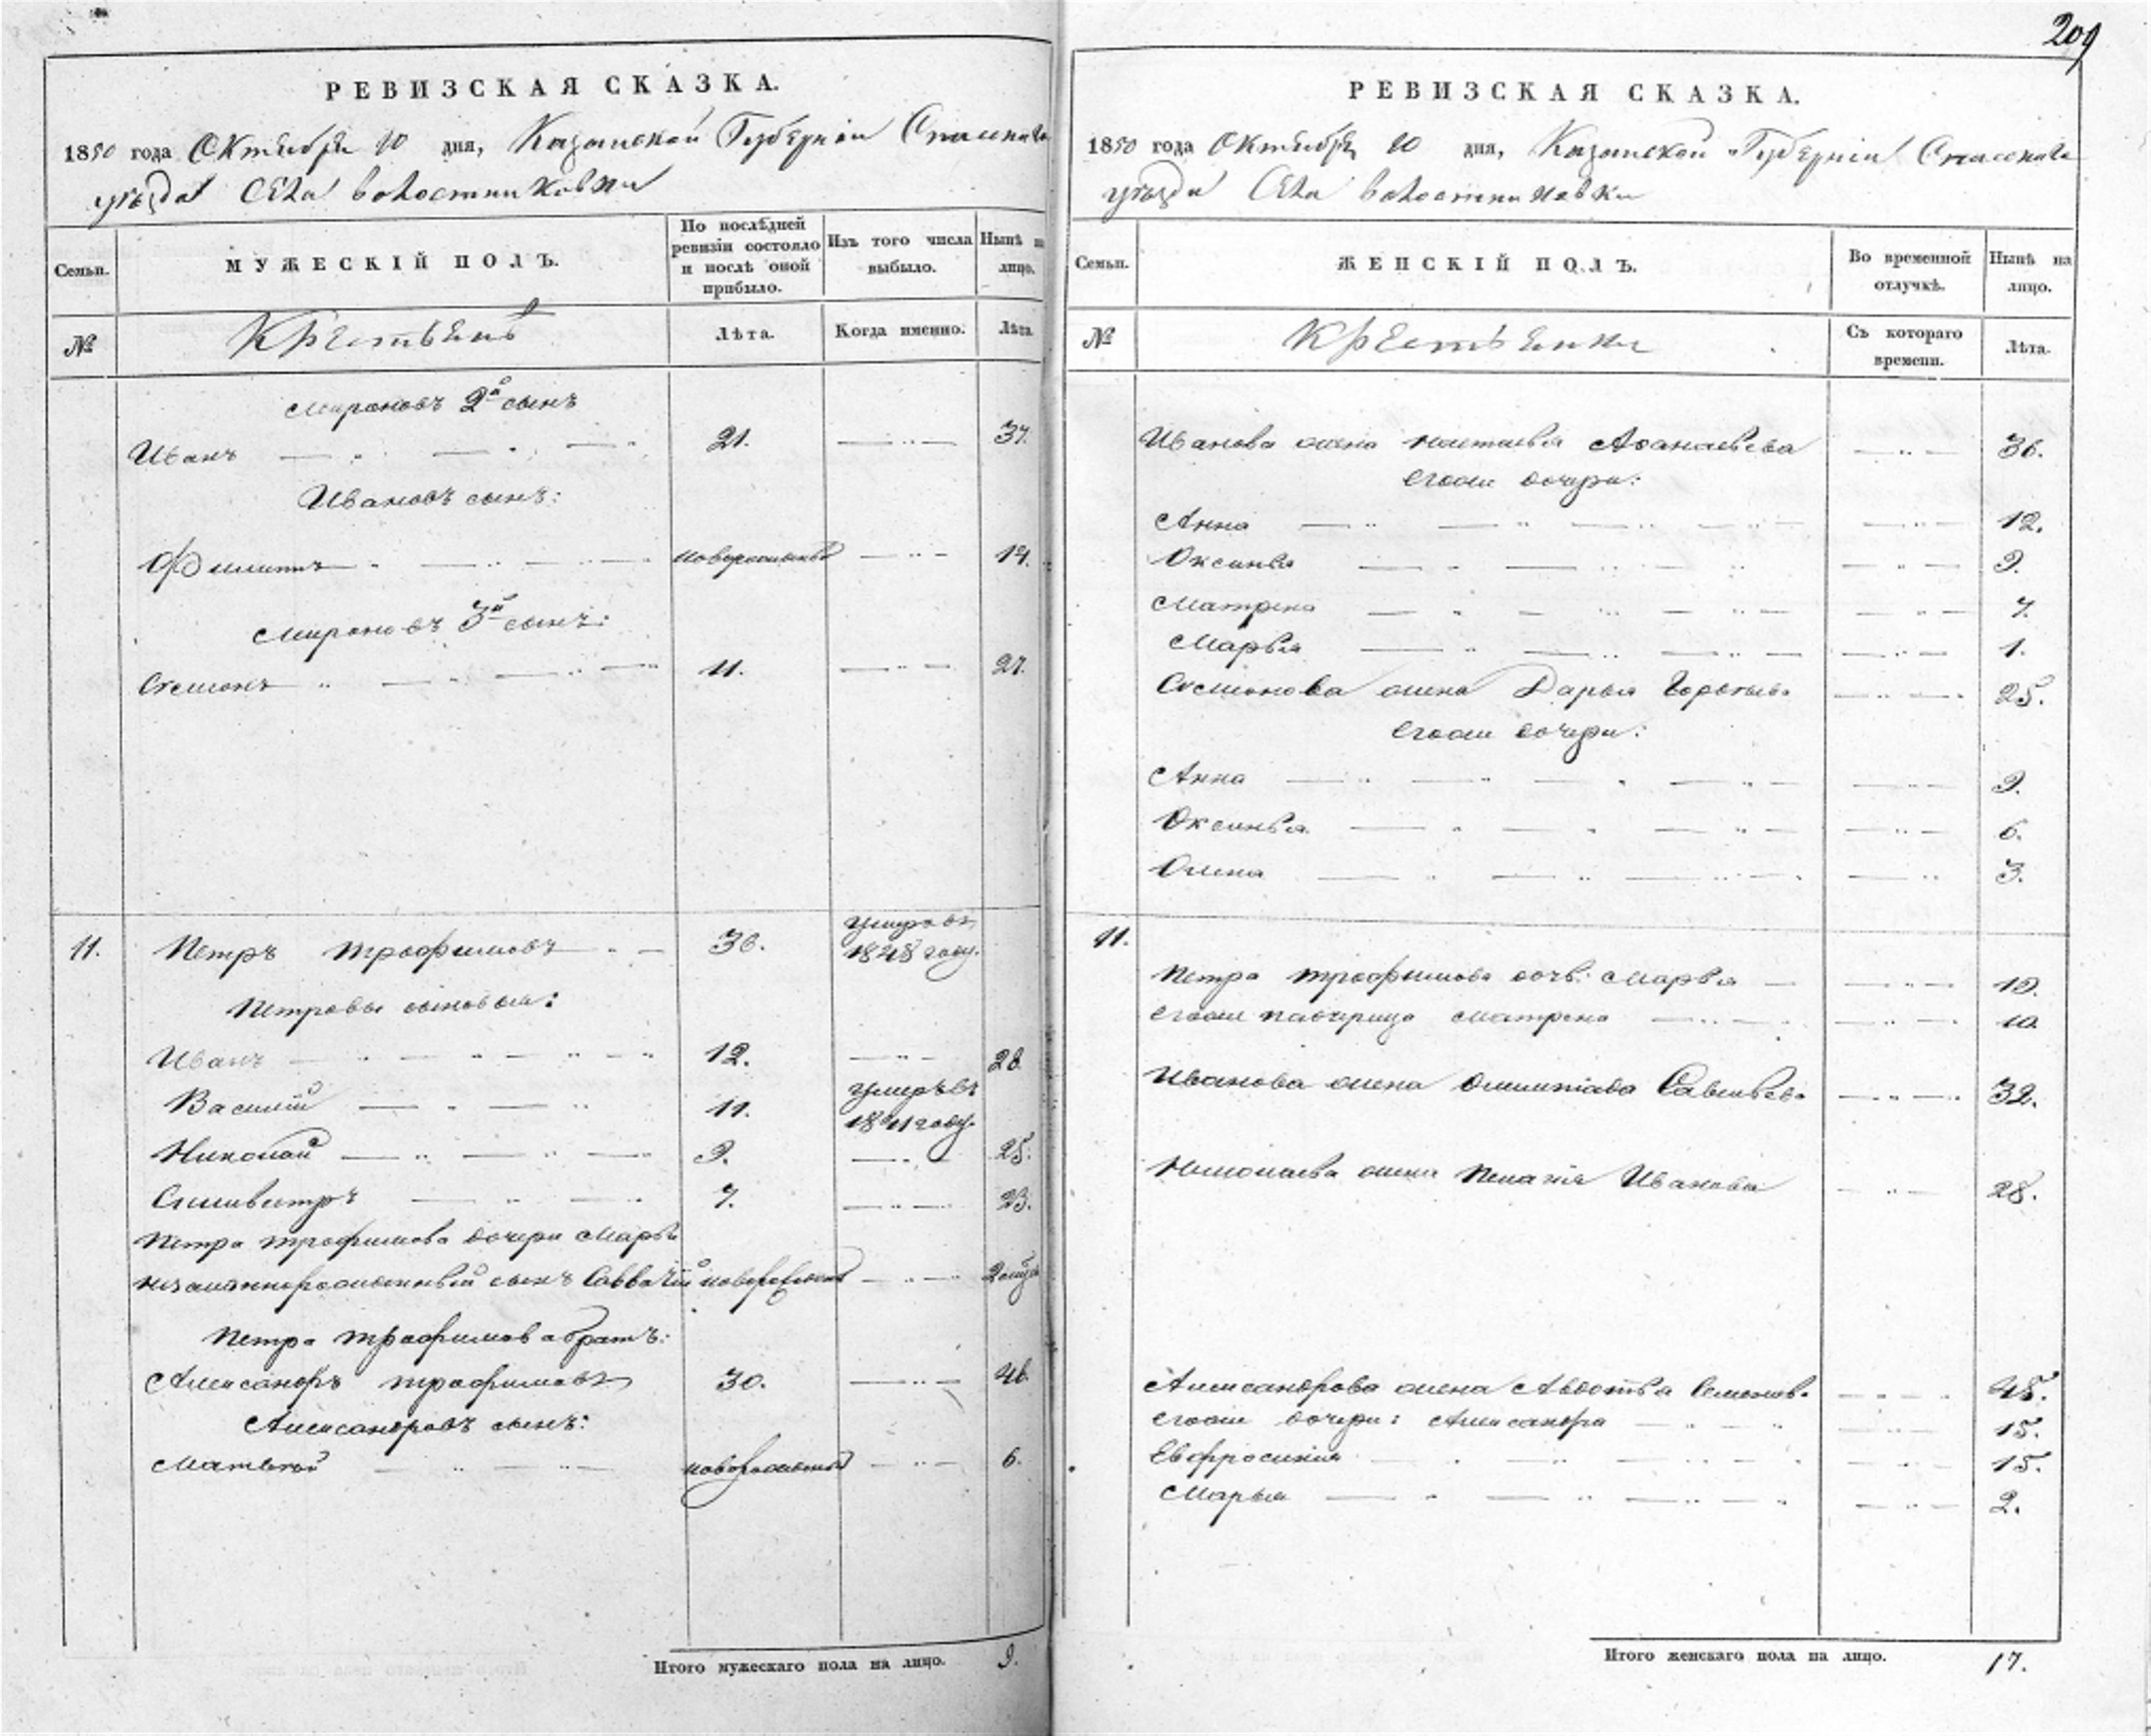 209
РЕВИЗСКАЯ СКАЗКА.
1850 года Октября 10 дня, Казанской Губерніи Спаскаго
уѣзда Села волостниковки
Семьи.
МУЖЕСКІЙ ПОЛЪ.
По послѣдней ревизіи состояло и послѣ оной прибыло.
Изъ того числа выбыло.
Нынѣ на лицо.
№
Крестьянъ
Лѣта.
Когда именно.
Лѣта.
Мироновъ 2й сынъ
Иванъ 21. 37.
Ивановъ сынъ:
Филиппъ новорожденный 14.
Мироновъ 3й сынъ:
Семенъ 11. 27.
11. Петръ трофимовъ 36. умеръ въ 1848 году.
Петровы сыновья:
Иванъ 12. 28
Василій 11. умеръ въ 1841 году.
Николай 9. 25.
Силивестръ 7. 23.
Петра трофимова дочери Марьи
незаконнорожденный сынъ Савватій новорожденный
Петра трофимова братъ:
Александръ трофимовъ 30. 46
Александровъ сынъ:
Матвѣй новорожденный 6.
Итого мужескаго пола на лицо. 9.
РЕВИЗСКАЯ СКАЗКА.
1850 года Октября 10 дня, Казанской Губерніи Спаскаго
уѣзда Села волостниковки
Семьи.
ЖЕНСКІЙ ПОЛЪ.
Во временной отлучкѣ.
Нынѣ на лицо.
№
Крестьянки
Съ котораго времени.
Лѣта.
Иванова жена Наталья Афанасьева 36.
Его же дочери:
Анна 12.
Оксинья 9.
Матрена 7.
Марья 1.
Семенова жена Дарья 25.
Его же дочери:
Анна 9.
Оксинья 6.
Олена 3.
11.
Петра трофимова дочь Марья 19.
Его же падчерица Матрена 10.
Иванова жена Савельева 32.
Николаева жена Пелагія Иванова 28.
Александрова жена Авдотья Семенова 45.
Его же дочери: Александра 15.
Евфросинія 15.
Марья 2.
Итого женскаго пола на лицо. 17.